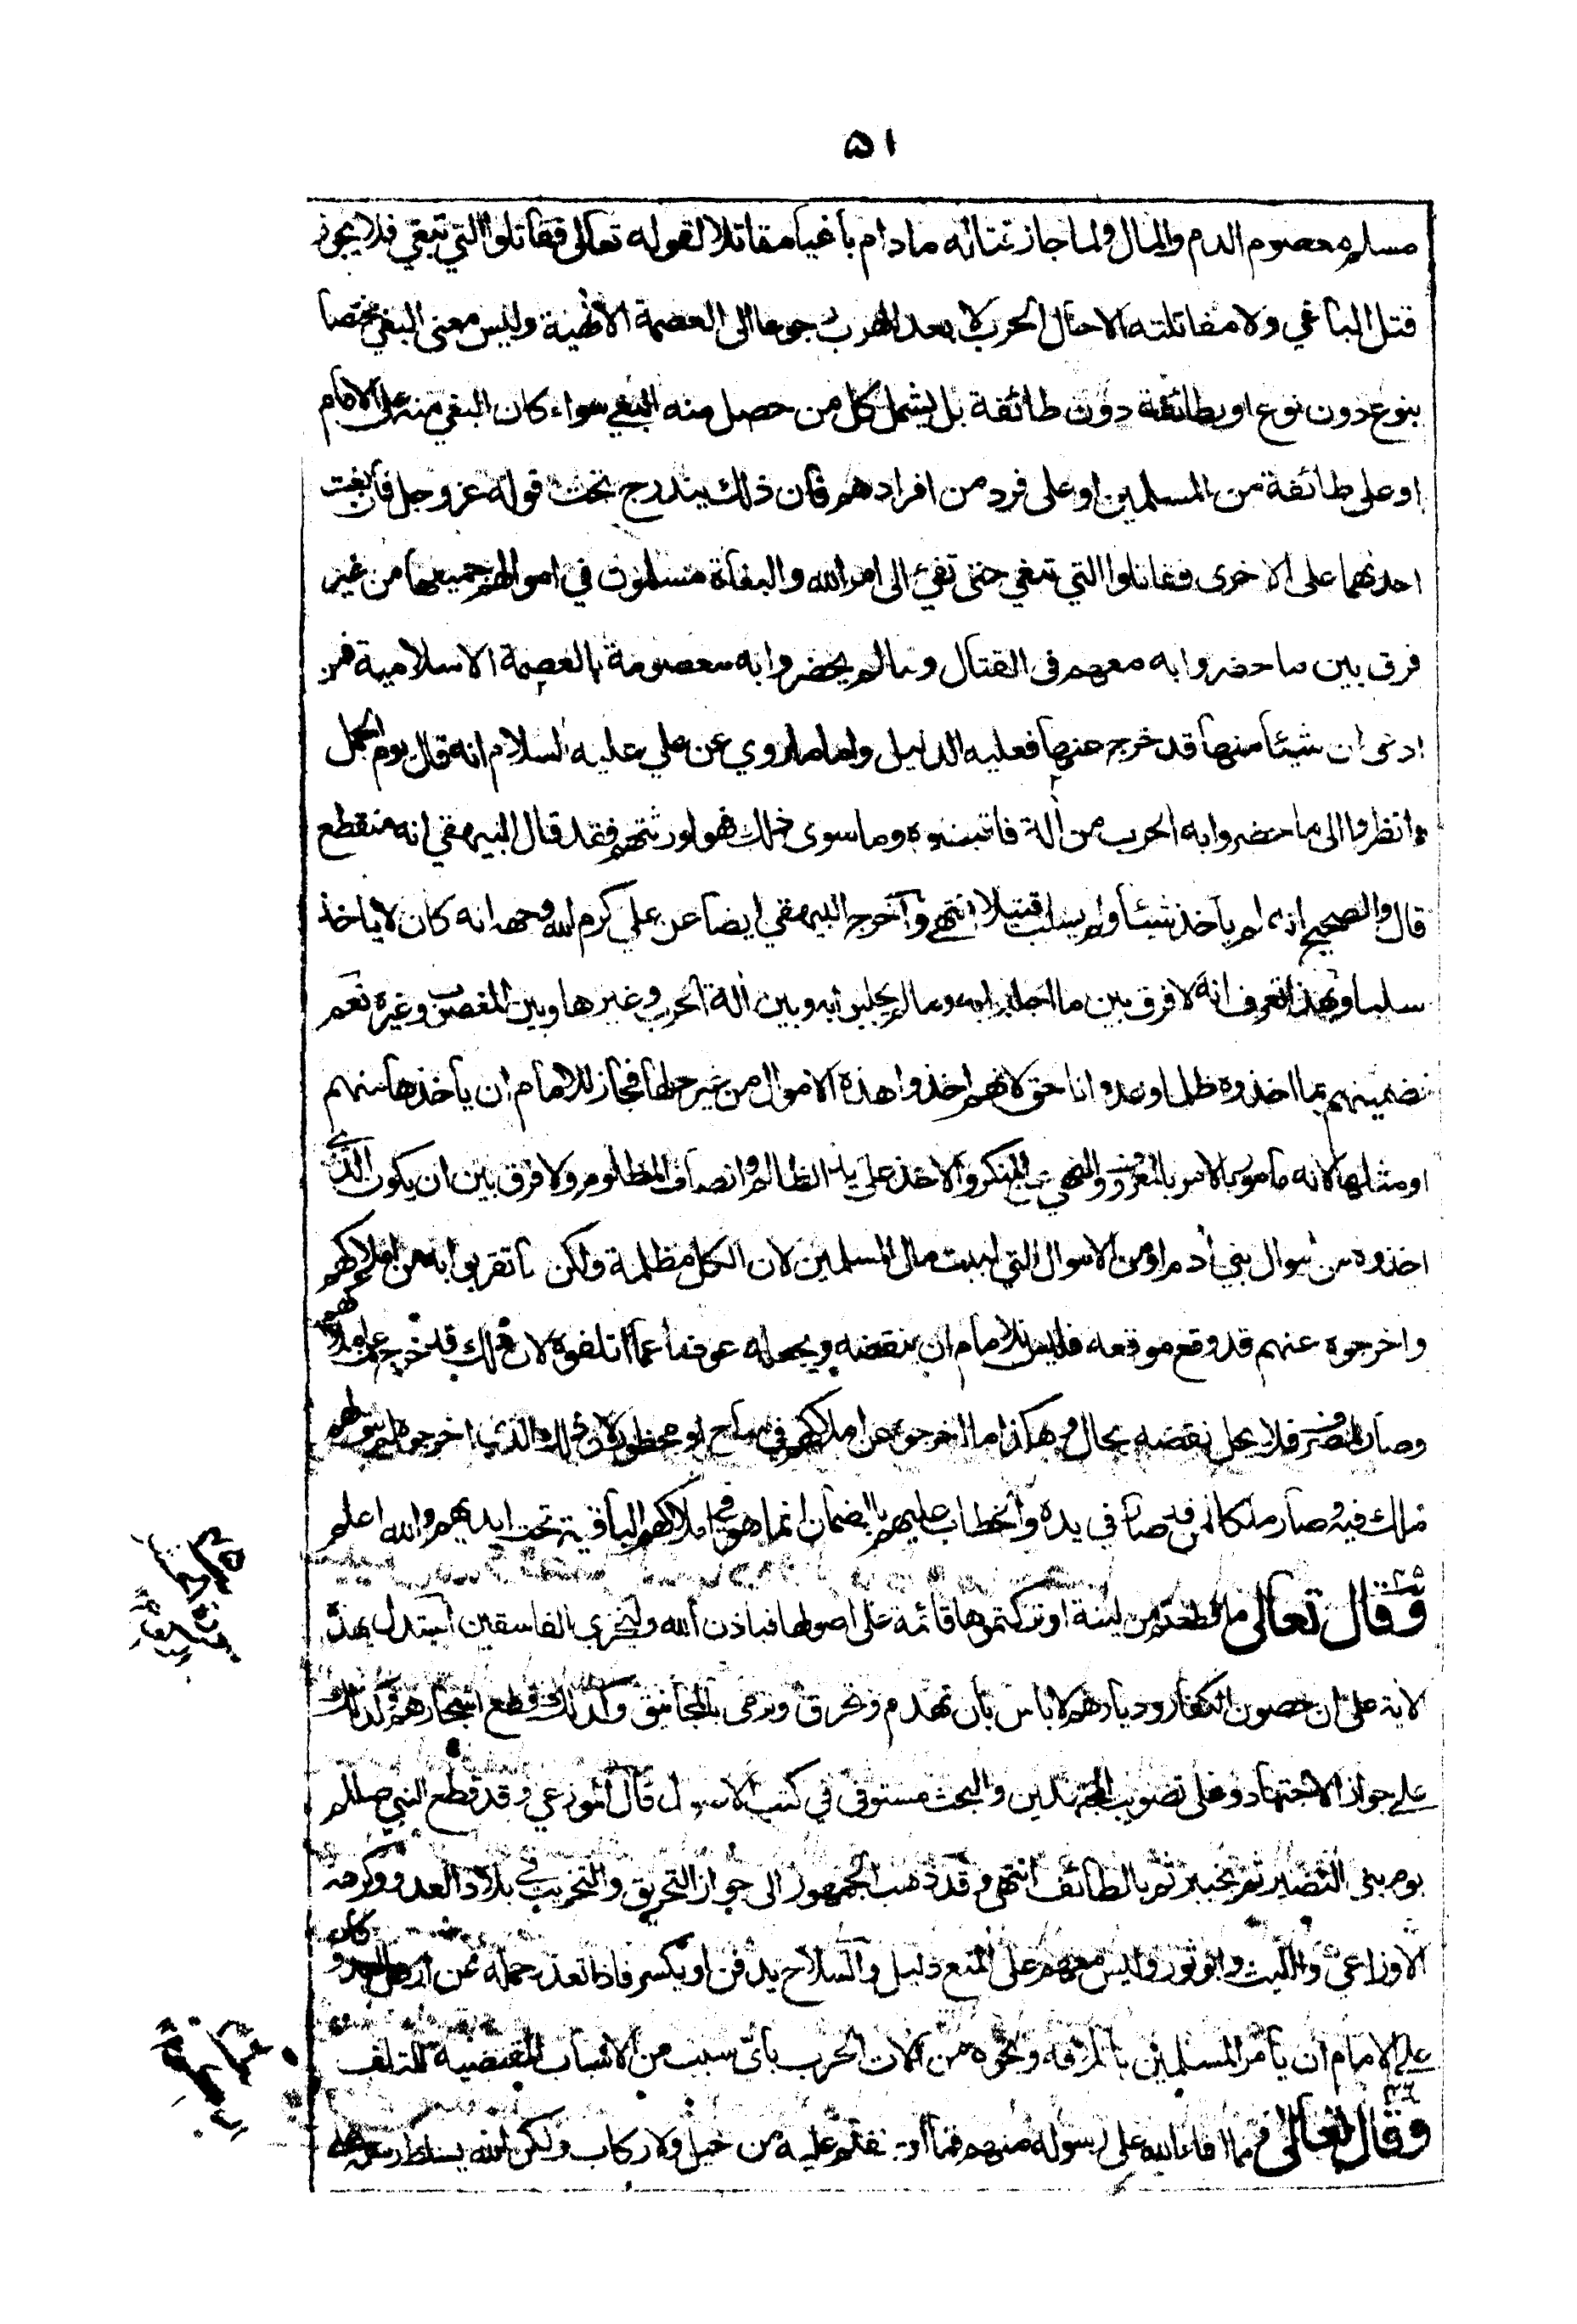 ٥١
مسلم معصوم الدم والمال ولما جاز قتاله ما دام باغيا مقاتلا لقوله تعالى فقاتلوا التي تبغي فلا يجوز
قتل الباغي ولا مقاتلته الا حال الحرب لا بعد الهرب رجوعا الى العصمة الاصلية وليس معنى البغي مختصا
بنوع دون نوع او بطائفة دون طائفة بل يشمل كل من حصل منه البغي سواء كان البغي منه على الامام
او على طائفة من المسلمين او على فرد من افرادهم فان ذلك يندرج تحت قوله عز وجل فان بغت
احدىهما على الاخرى فقاتلوا التي تبغي حتى تفيئ الى امر الله والبغاة مسلمون في اموالهم جميعها من غير
فرق بين ما حضروا به معهم في القتال وما لم يحضروا به معصومة بالعصمة الاسلامية فمن
ادعى ان شيئا منها قد خرج عنها فعليه الدليل واما ما روي عن علي عليه السلام انه قال يوم الجمل
وانظروا الى ما حضروا به الحرب من آلة فاقبضوه وما سوى ذلك فهو لورثتهم فقد قال البيهقي انه منقطع
قال والصحيح انه لم ياخذ شيئا ولم يسلب قتيلا انتهى وأخرج البيهقي ايضا عن علي كرم الله وجهه انه كان لا ياخذ
سلبا وبهذا تعرف انه لا فرق بين ما اجلبوا به وما لم يجلبوا به وبين آلة الحرب وغيرها وبين المغصوب وغيره نعم
تضمينهم بما اخذوه ظلما وعدوانا حق لانهم اخذوا هذه الاموال من غير حلها فجاز للامام ان يأخذها منهم
او مثلها لانه مأمور بالامر بالمعروف والنهي عن المنكر والاخذ على يد الظالم وانصاف المظلوم ولا فرق بين ان يكون الذي
اخذوه من اموال بني آدم او من الاموال التي لبيت مال المسلمين لان الكل مظلمة ولكن ما تقربوا به من املاكهم
واخرجوه عنهم قد وقع موقعه فليس للامام ان ينقضه ويجعله عوضا عما اتلفوه لان ذلك قد خرج عن املاكهم
وصار للمصرف فلا يحل نقضه بحال وهكذا ما اخرجوه عن املاكهم في مباح او محظور لان ذلك الذي اخرجوه لم يبق لهم
ملك فيه وصار ملكا لمن قد صار في يده والخطاب عليهم بالضمان انما هو في املاكهم الباقية تحت ايديهم والله اعلم
وقال تعالى ما قطعتم من لينة او تركتموها قائمة على اصولها فباذن الله وليخزي الفاسقين استدل بهذه
الاية على ان حصون الكفار وديارهم لا باس بان تهدم وتحرق وترمى بالمجانيق وكذلك قطع اشجارهم وكذلك
على جواز الاجتهاد وعلى تصويب المجتهدين والبحث مستوفى في كتب الاصول قال الموزعي وقد قطع النبي صللم
يوم بني النضير ثم بخيبر ثم بالطائف انتهى وقد ذهب الجمهور الى جواز التحريق والتخريب في بلاد العدو وكرهه
الاوزاعي والليث وابو ثور وليس معهم على المنع دليل والسلاح يدفن او يكسر فاذا تعذر حمله من ارض العدو كان
على الامام ان يأمر المسلمين باتلافه ونحوه من آلات الحرب بأي سبب من الاسباب المقتضية للتلف
وقال تعالى وما افاء الله على رسوله منهم فما اوجفتم عليه من خيل ولا ركاب ولكن الله يسلط رسله